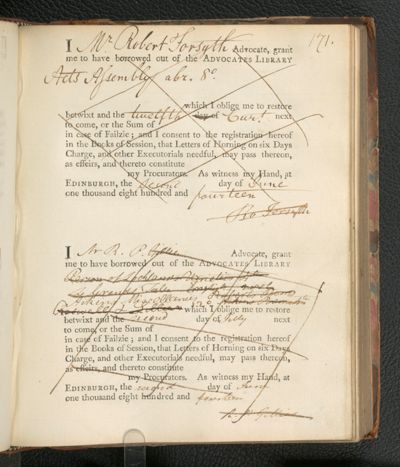 171.
I Mr Robert Forsyth Advocate, grant
me to have borrowed out of the ADVOCATES LIBRARY
Acts Assembly abr. 8o
which I oblige me to restore
betwixt and the twelfth day of Curt. next
to come, or the Sum of
in case of Failzie; and I consent to the registration hereof
in the Books of Session, that Letters of Horning on six Days
Charge, and other Executorials needful, may pass thereon,
as effeirs, and thereto constitute
my Procurators. As witness my Hand, at
EDINBURGH, the second day of June
one thousand eight hundred and fourteen
Ro Forsyth
I Mr R. P. Gillies Advocate, grant
me to have borrowed out of the ADVOCATES LIBRARY
which I oblige me to restore
betwixt and the second day of July next
to come, or the Sum of
in case of Failzie; and I consent to the registration hereof
in the Books of Session, that Letters of Horning on six Days
Charge, and other Executorials needful, may pass thereon,
as effeirs, and thereto constitute
my Procurators. As witness my Hand, at
EDINBURGH, the second day of June
one thousand eight hundred and fourteen
R. P. Gillies